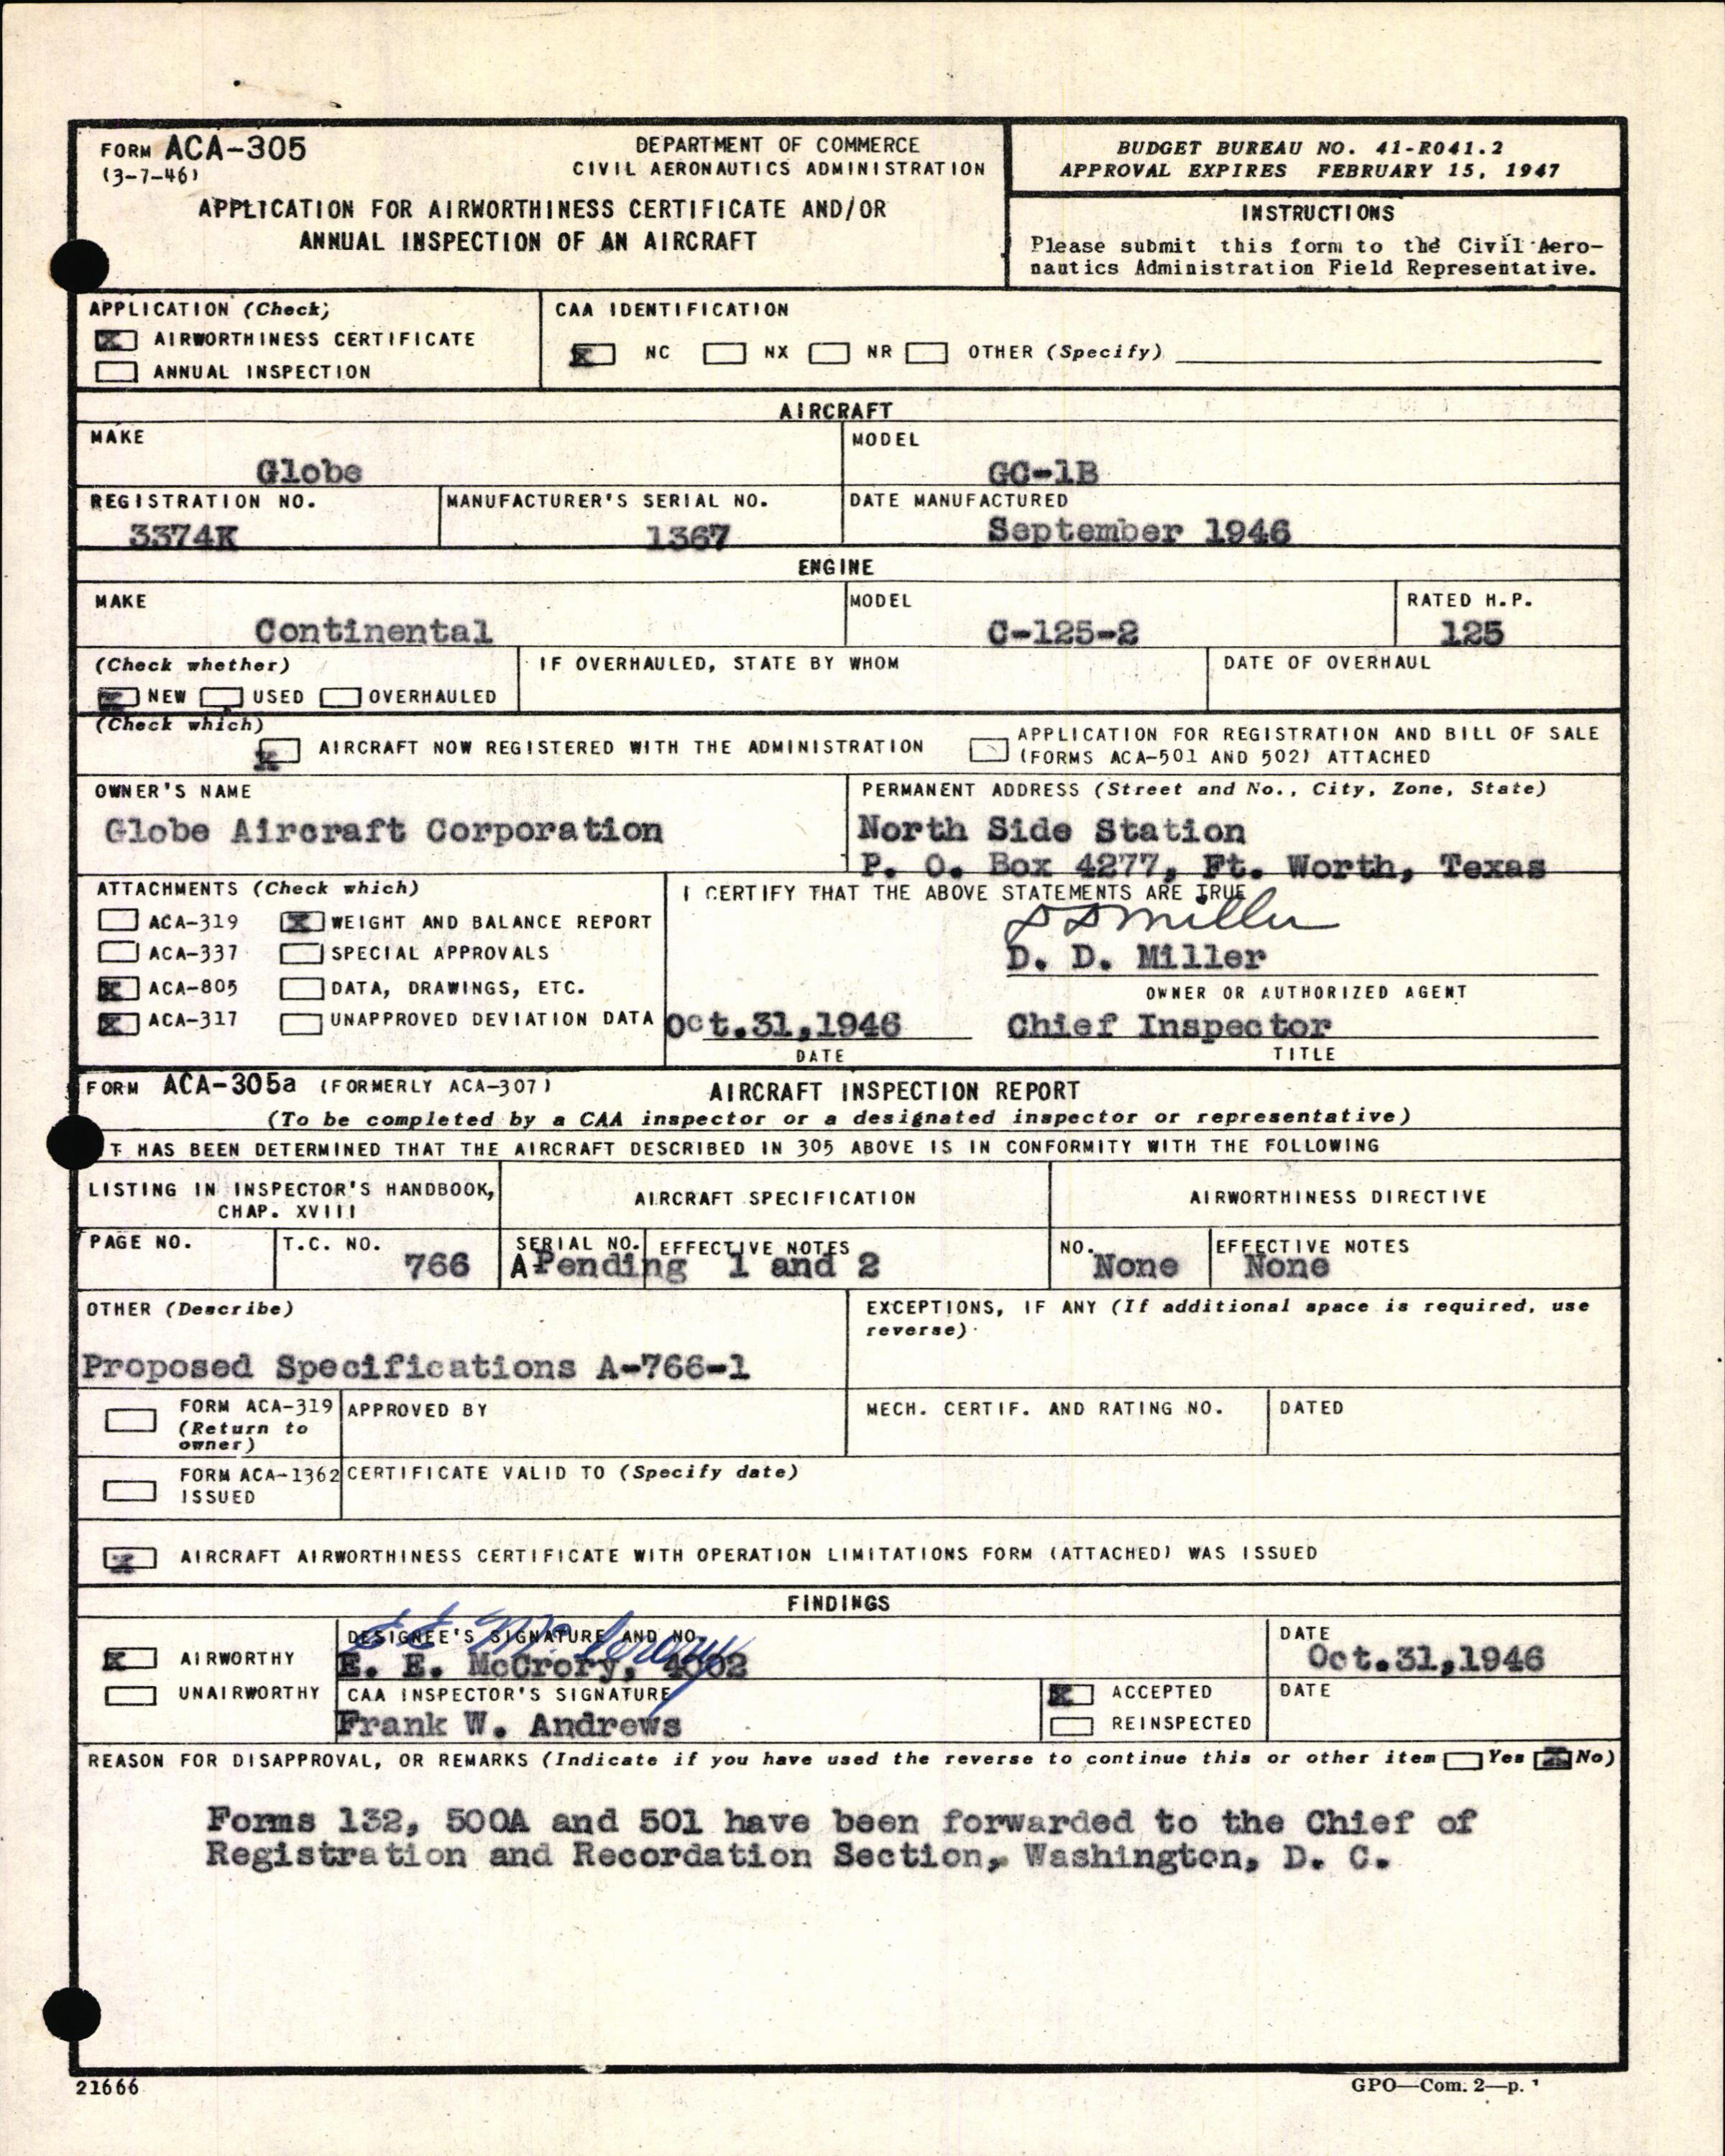 FORM ACA-305
(3-7-46)
DEPARTMENT OF COMMERCE
CIVIL AERONAUTICS ADMINISTRATION
APPLICATION FOR AIRWORTHINESS CERTIFICATE AND/OR
ANNUAL INSPECTION OF AN AIRCRAFT
BUDGET BUREAU NO. 41-R041.2
APPROVAL EXPIRES FEBRUARY 15, 1947
INSTRUCTIONS
Please submit this form to the Civil Aero-
nautics Administration Field Representative.
APPLICATION (Check)
X AIRWORTHINESS CERTIFICATE
ANNUAL INSPECTION
CAA IDENTIFICATION
X NC NX NR OTHER (Specify)
AIRCRAFT
MAKE
Globe
MODEL
GC-1B
REGISTRATION NO.
3374K
MANUFACTURER'S SERIAL NO.
1367
DATE MANUFACTURED
September 1946
ENGINE
MAKE
Continental
MODEL
C-125-2
RATED H.P.
125
(Check whether)
X NEW USED OVERHAULED
IF OVERHAULED, STATE BY WHOM
DATE OF OVERHAUL
(Check which)
X AIRCRAFT NOW REGISTERED WITH THE ADMINISTRATION
APPLICATION FOR REGISTRATION AND BILL OF SALE
(FORMS ACA-501 AND 502) ATTACHED
OWNER'S NAME
Globe Aircraft Corporation
PERMANENT ADDRESS (Street and No., City, Zone, State)
North Side Station
P. O. Box 4277, Ft. Worth, Texas
ATTACHMENTS (Check which)
ACA-319 X WEIGHT AND BALANCE REPORT
ACA-337 SPECIAL APPROVALS
X ACA-805 DATA, DRAWINGS, ETC.
X ACA-317 UNAPPROVED DEVIATION DATA
I CERTIFY THAT THE ABOVE STATEMENTS ARE TRUE
D D Miller
D. D. Miller
OWNER OR AUTHORIZED AGENT
Oct.31,1946
DATE
Chief Inspector
TITLE
FORM ACA-305a (FORMERLY ACA-307)
AIRCRAFT INSPECTION REPORT
(To be completed by a CAA inspector or a designated inspector or representative)
T HAS BEEN DETERMINED THAT THE AIRCRAFT DESCRIBED IN 305 ABOVE IS IN CONFORMITY WITH THE FOLLOWING
LISTING IN INSPECTOR'S HANDBOOK,
CHAP. XVIII
AIRCRAFT SPECIFICATION
AIRWORTHINESS DIRECTIVE
PAGE NO.
T.C. NO.
766
SERIAL NO.
A-Pending
EFFECTIVE NOTES
1 and 2
NO.
None
EFFECTIVE NOTES
None
OTHER (Describe)
Proposed Specifications A-766-1
EXCEPTIONS, IF ANY (If additional space is required, use
reverse)
FORM ACA-319
(Return to
owner)
APPROVED BY
MECH. CERTIF. AND RATING NO.
DATED
FORM ACA-1362
ISSUED
CERTIFICATE VALID TO (Specify date)
X AIRCRAFT AIRWORTHINESS CERTIFICATE WITH OPERATION LIMITATIONS FORM (ATTACHED) WAS ISSUED
FINDINGS
X AIRWORTHY
UNAIRWORTHY
DESIGNEE'S SIGNATURE AND NO.
E E McCrory
E. E. McCrory, 4002
DATE
Oct.31,1946
CAA INSPECTOR'S SIGNATURE
Frank W. Andrews
X ACCEPTED
REINSPECTED
DATE
REASON FOR DISAPPROVAL, OR REMARKS (Indicate if you have used the reverse to continue this or other item Yes X No)
Forms 132, 500A and 501 have been forwarded to the Chief of
Registration and Recordation Section, Washington, D. C.
21666
GPO—Com. 2—p.